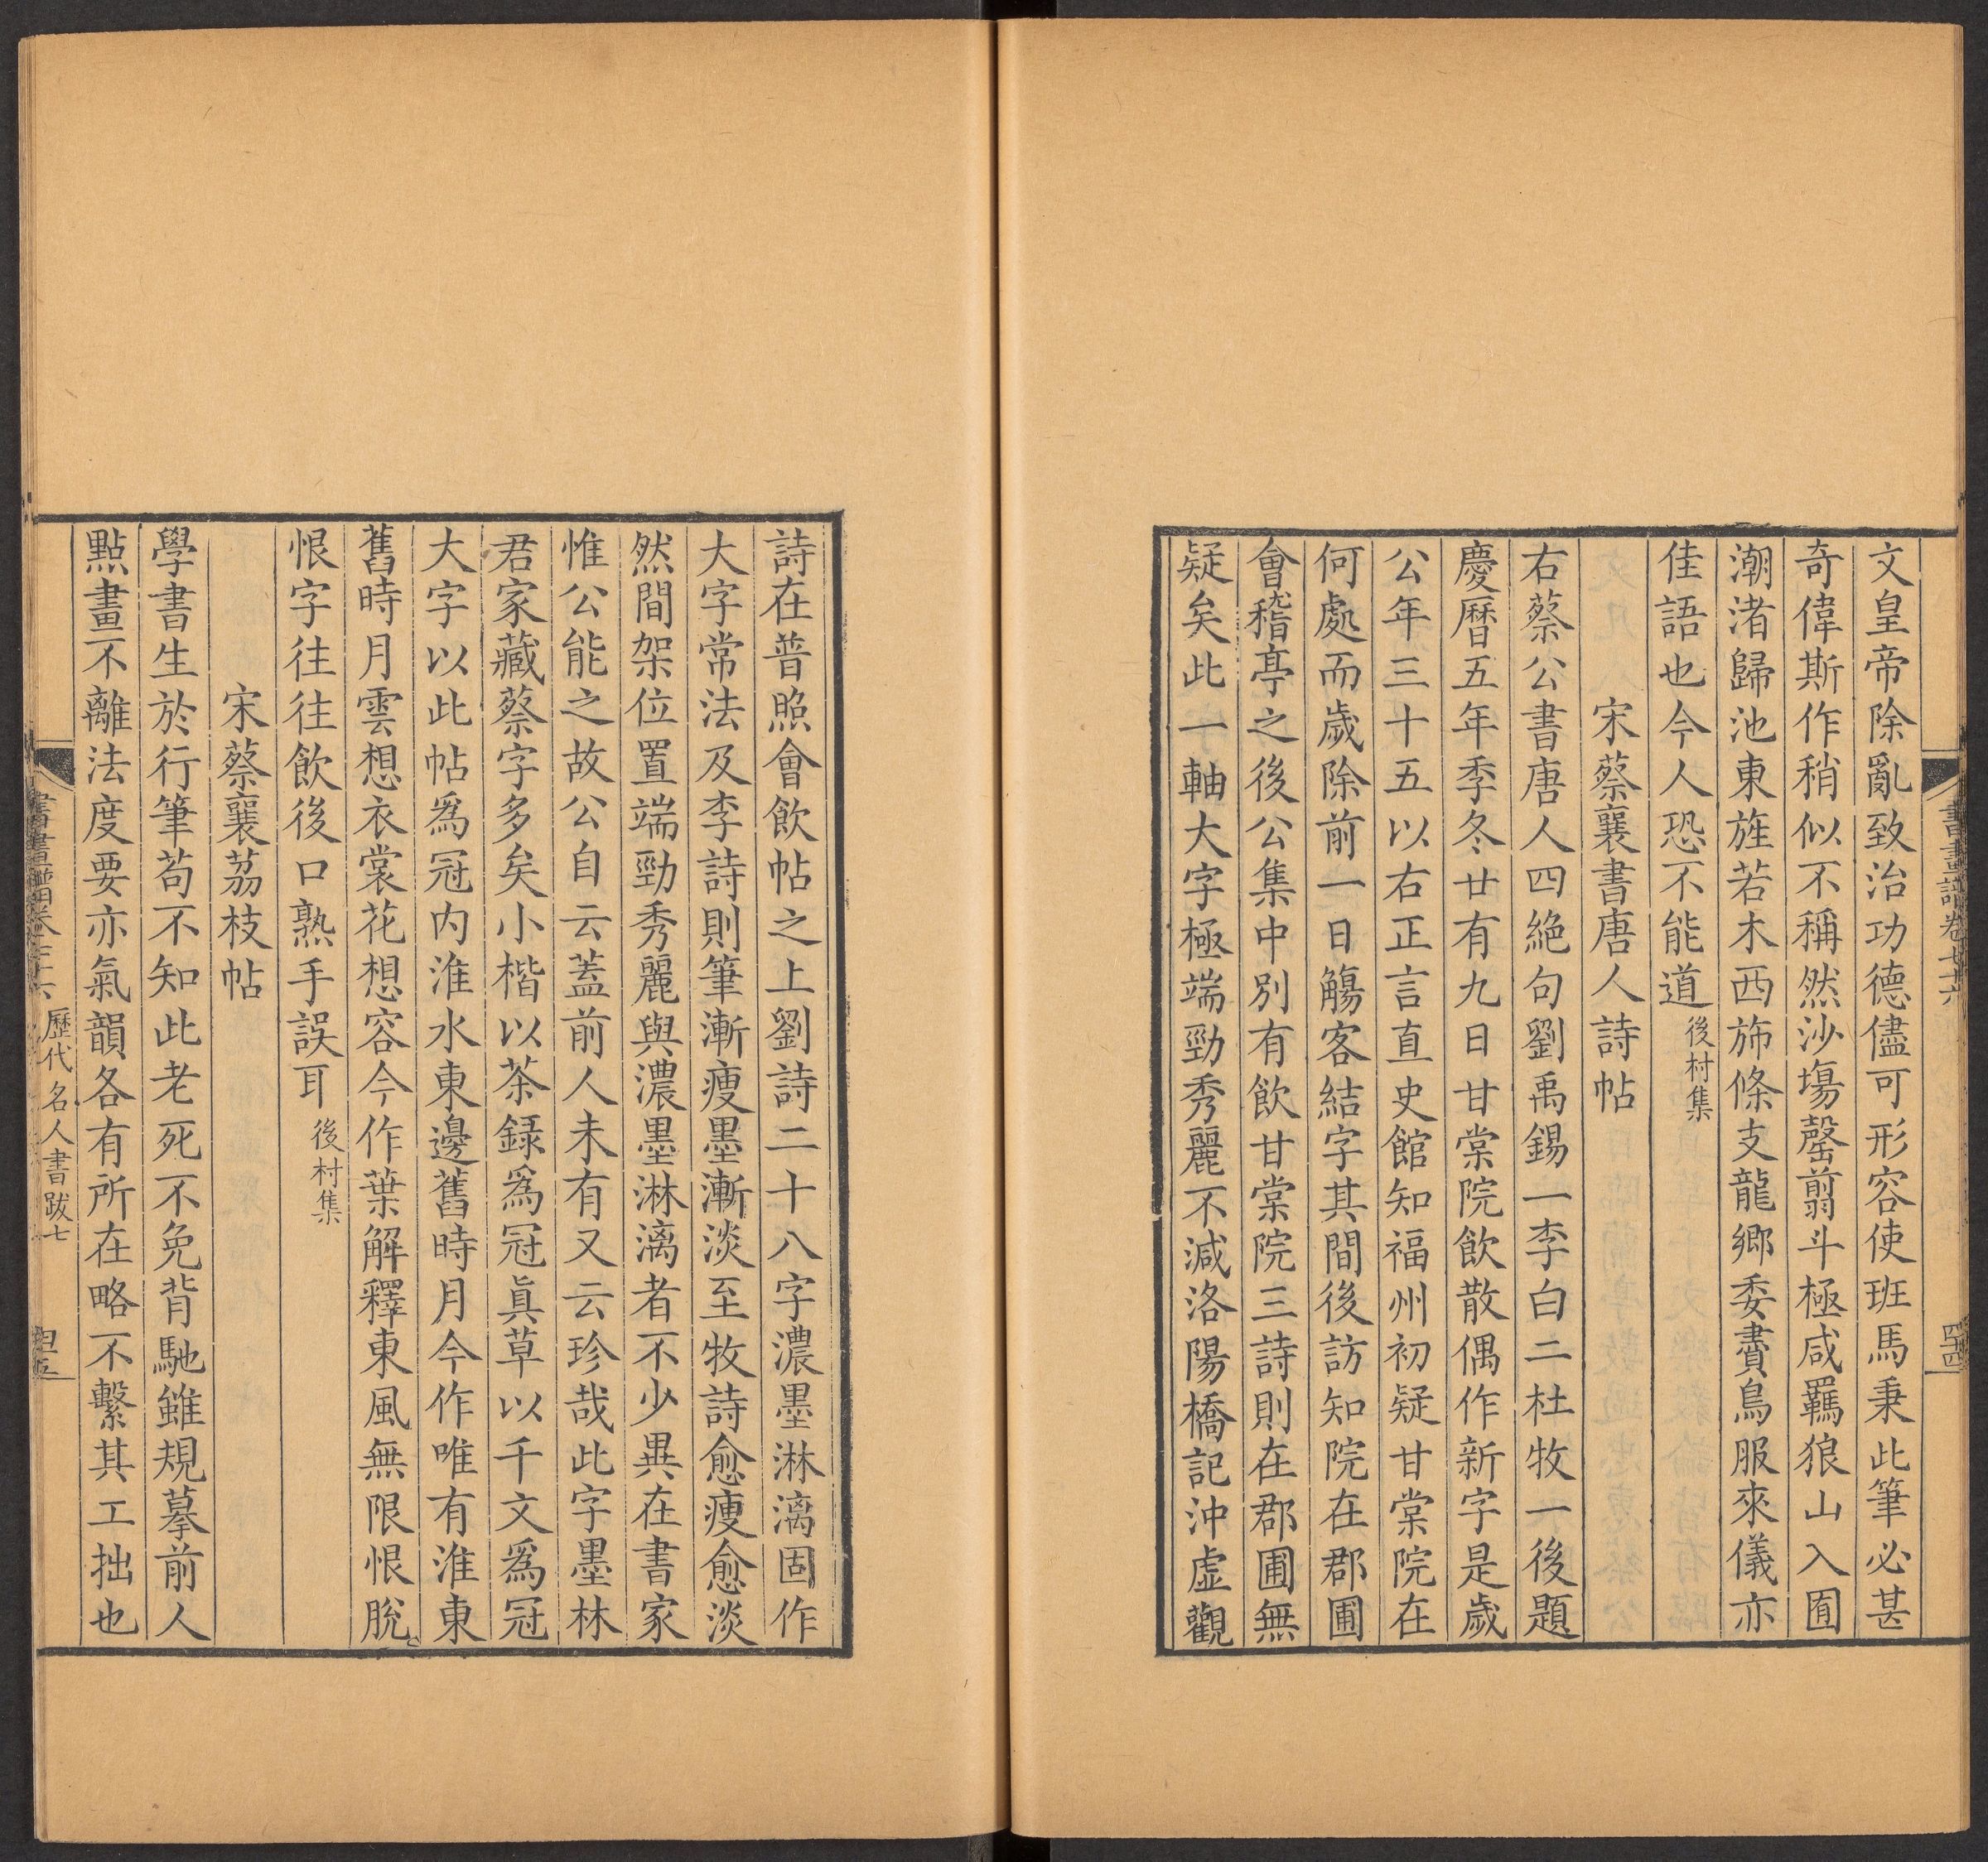 文皇帝除亂致治功德儘可形容使班馬秉此筆必甚
奇偉斯作稍似不稱然沙塲罄翦斗極咸羈狼山入囿
潮渚歸池東旌若木西斾條支龍鄉委賮鳥服來儀亦
佳語也今人恐不能道後村集
宋蔡襄書唐人詩帖
右蔡公書唐人四絶句劉禹錫一李白二杜牧一後題
慶曆五年季冬廿有九日甘棠院飲散偶作新字是歲
公年三十五以右正言直史館知福州初疑甘棠院在
何處而歲除前一日觴客結字其間後訪知院在郡圃
會稽亭之後公集中別有飲甘棠院三詩則在郡圃無
疑矣此一軸大字極端勁秀麗不減洛陽橋記沖虛觀
詩在普照會飲帖之上劉詩二十八字濃墨淋漓固作
大字常法及李詩則筆漸瘦墨漸淡至牧詩愈瘦愈淡
然間架位置端勁秀麗與濃墨淋漓者不少異在書家
惟公能之故公自云蓋前人未有又云珍哉此字墨林
君家藏蔡字多矣小楷以茶録爲冠眞草以千文爲冠
大字以此帖爲冠内淮水東邊舊時月今作唯有淮東
舊時月雲想衣裳花想容今作葉解釋東風無限恨脫
恨字往往飲後口熟手誤耳後村集
宋蔡襄茘枝帖
學書生於行筆苟不知此老死不免背馳雖規摹前人
點畫不離法度要亦氣韻各有所在略不繫其工拙也
歷代名人書跋七